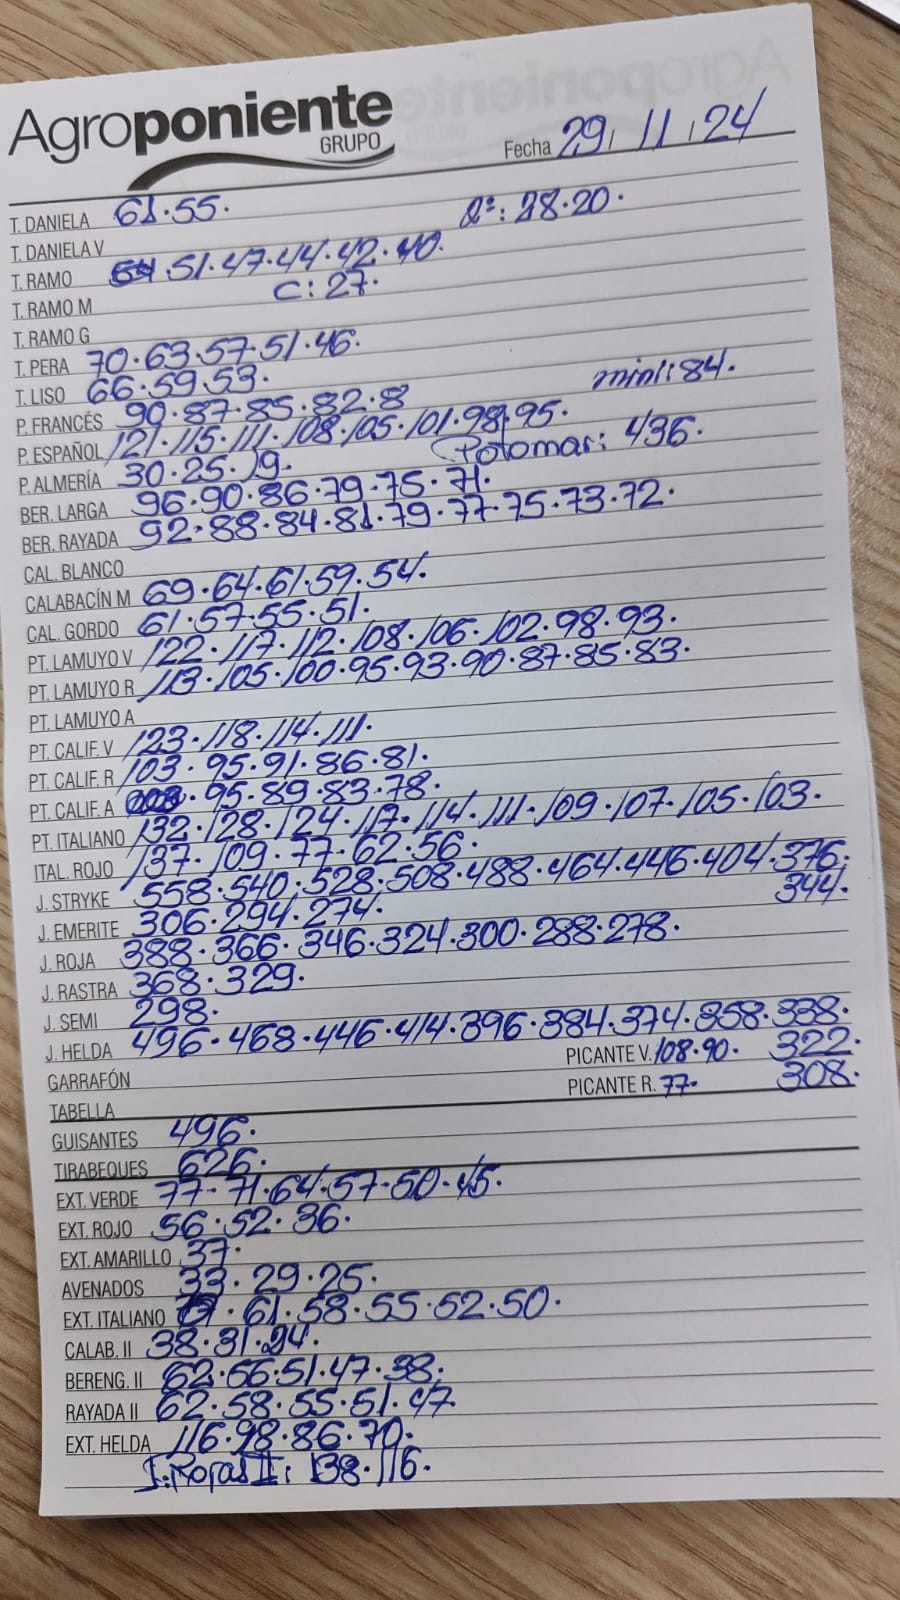 Agroponiente
GRUPO
Fecha 29 / 11 / 24
T. DANIELA 61.55. 2ª: 28.20.
T. DANIELA V
T. RAMO 51.47.44.42.40.
T. RAMO M C: 27.
T. RAMO G
T. PERA 70.63.57.51.46.
T. LISO 66.59.53. mini: 84.
P. FRANCÉS 90.87.85.82.8
P. ESPAÑOL 121.115.111.108.105.101.98.95.
P. ALMERÍA 30.25.19. Potomar: 436.
BER. LARGA 96.90.86.79.75.71.
BER. RAYADA 92.88.84.81.79.77.75.73.72.
CAL. BLANCO
CALABACÍN M 69.64.61.59.54.
CAL. GORDO 61.57.55.51.
PT. LAMUYO V 122.117.112.108.106.102.98.93.
PT. LAMUYO R 113.105.100.95.93.90.87.85.83.
PT. LAMUYO A
PT. CALIF. V 123.118.114.111.
PT. CALIF. R 103.95.91.86.81.
PT. CALIF. A .95.89.83.78.
PT. ITALIANO 132.128.124.117.114.111.109.107.105.103.
ITAL. ROJO 137.109.77.62.56.
J. STRYKE 558.540.528.508.488.464.446.404.376.
344.
J. EMERITE 306.294.274.
J. ROJA 388.366.346.324.300.288.278.
J. RASTRA 368.329.
J. SEMI 298.
J. HELDA 496.468.446.414.396.384.374.358.338.
PICANTE V. 108.90. 322.
GARRAFÓN
PICANTE R. 77. 308.
TABELLA
GUISANTES 496.
TIRABEQUES 626.
EXT. VERDE 77.71.64.57.50.45.
EXT. ROJO 56.52.36.
EXT. AMARILLO 37.
AVENADOS 33.29.25.
EXT. ITALIANO .61.58.55.52.50.
CALAB. II 38.31.24.
BERENG. II 62.56.51.47.38.
RAYADA II 62.58.55.51.47.
EXT. HELDA 116.98.86.70.
J. Rojas II: 138.116.